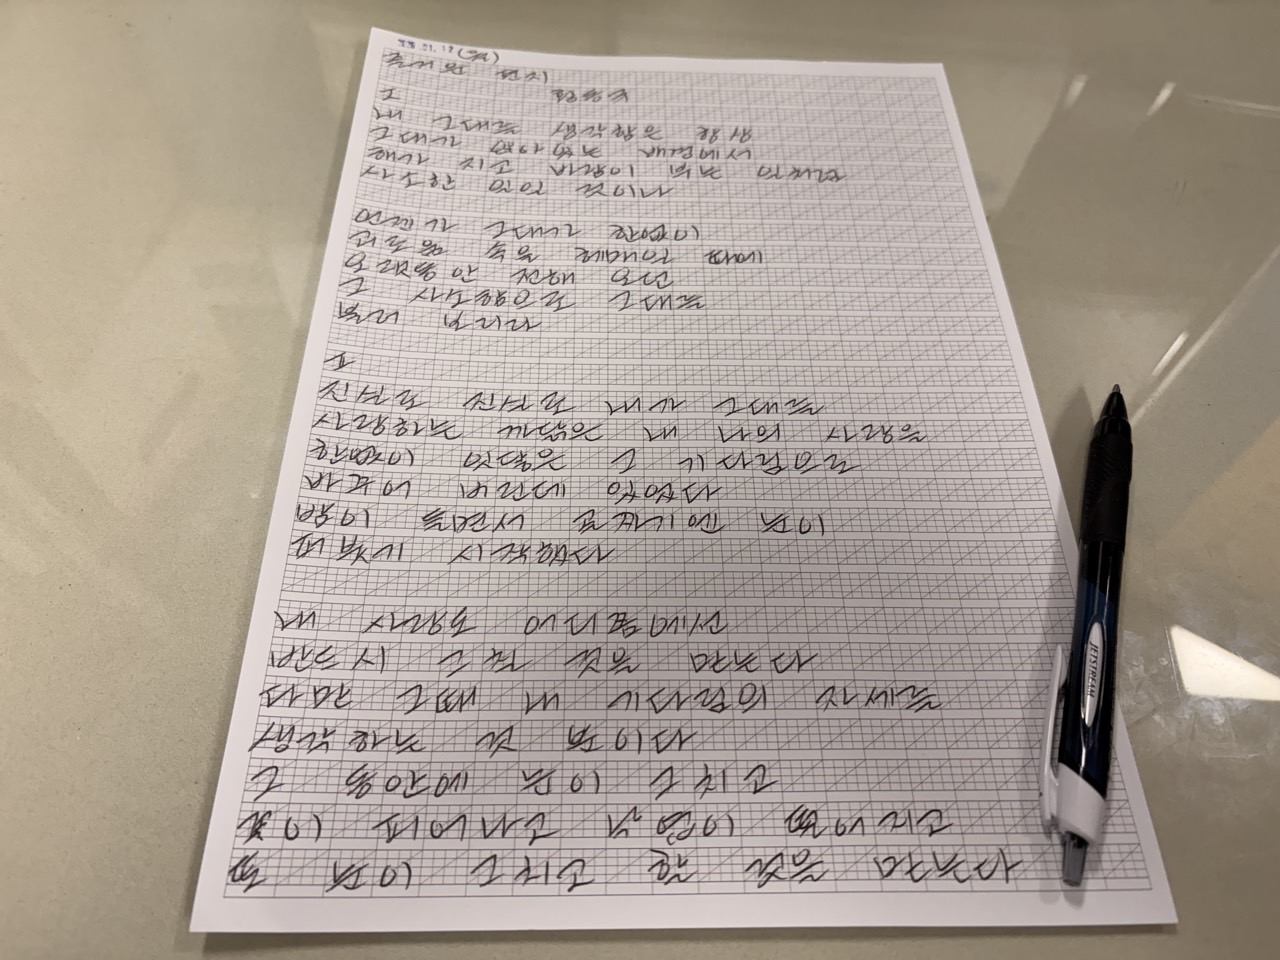 즐거운 편지
황동규
I
내 그대를 생각함은 항상
그대가 앉아 있는 배경에서
해가 지고 바람이 부는 일처럼
사소한 일일 것이나
언젠가 그대가 한없이
괴로움 속을 헤매일 때에
오랫동안 전해 오던
그 사소함으로 그대를
불러 보리라
II
진실로 진실로 내가 그대를
사랑하는 까닭은 내 나의 사랑을
한없이 잇닿은 그 기다림으로
바꾸어 버린데 있었다
밤이 들면서 골짜기엔 눈이
퍼붓기 시작했다
내 사랑도 어디쯤에선
반드시 그칠 것을 믿는다
다만 그때 내 기다림의 자세를
생각하는 것 뿐이다
그 동안에 눈이 그치고
꽃이 피어나고 낙엽이 떨어지고
또 눈이 그치고 할 것을 믿는다
JETSTREAM